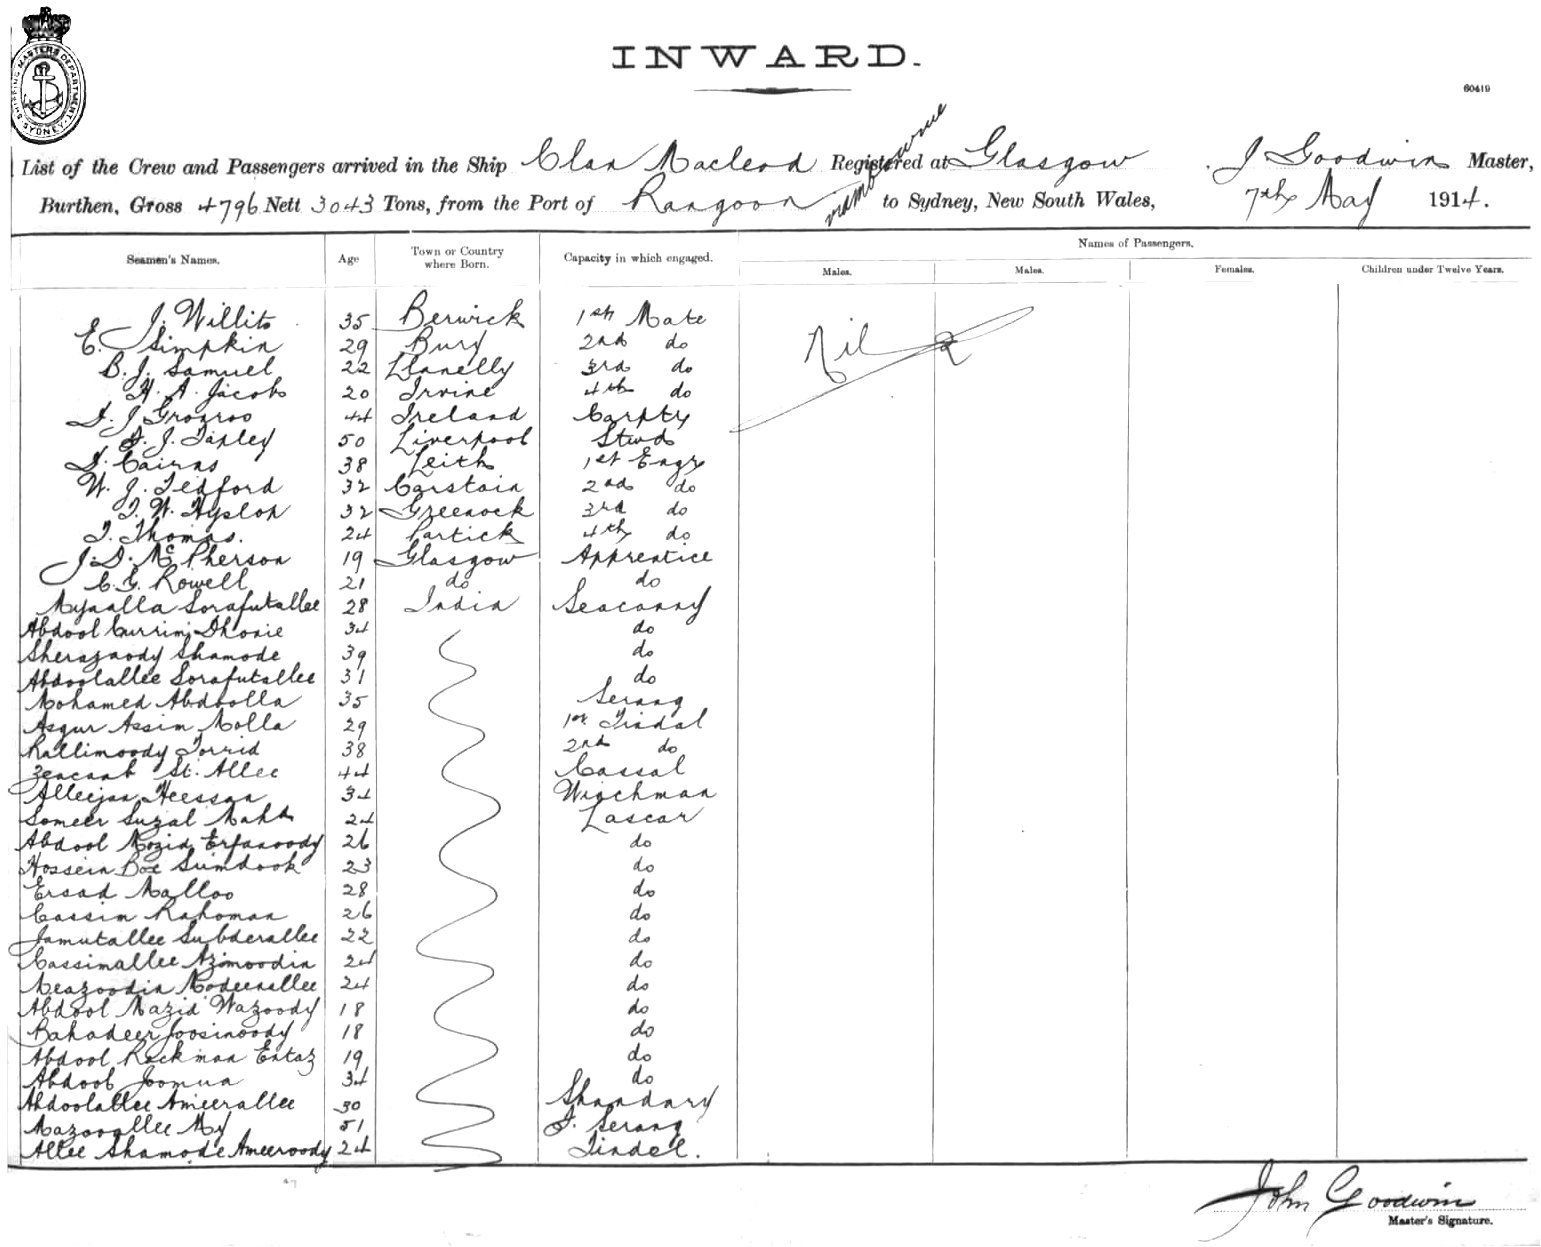 SHIPPING MASTERS DEPARTMENT SYDNEY
INWARD.
60419
List of the Crew and Passengers arrived in the Ship Clan Macleod Registered at Glasgow J Goodwin Master,
Burthen, Gross 4796 Nett 3043 Tons, from the Port of Rangoon to Sydney, New South Wales, 7th May 1914.
Seamen's Names. Age Town or Country where Born. Capacity in which engaged. Names of Passengers.
Males. Males. Females. Children under Twelve Years.
J. Willits 35 Berwick 1st Mate
Nil
E. Simpkin 29 Bury 2nd do
B. J. Samuel 22 Llanelly 3rd do
H. A. Jacobs 20 Irvine 4th do
J 44 Ireland Carptr
J. Tapley 50 Liverpool Stwd
D. Cairns 38 Leith 1st Engr
W. J. Tedford 32 Carstain 2nd do
T. W. Hyslop 32 Greenock 3rd do
T. Thomas. 24 Partick 4th do
J. D. McPherson 19 Glasgow Apprentice
C. G. Rowell 21 do do
Sorafutallee 28 India Seaconny
Abdool Currim 34 do
Shamode 39 do
Abdoolallee Sorafutallee 31 do
Mohamed Abdoolla 35 Serang
Asgur Assim Molla 29 1st Tindal
Kallimoody Torrid 38 2nd do
St. Allee 44 Cassal
Alleejan Heessan 34 Winchman
Someer Suzal 24 Lascar
Abdool Mozid Erfanoody 26 do
Hossein Box 23 do
Ersad Malloo 28 do
Cassim Rahoman 26 do
Jamutallee Subderallee 22 do
Cassimallee Azimoodin 24 do
Meazoodin Modeenallee 24 do
Abdool Mazid Wazoody 18 do
Bahadeer Joosinoody 18 do
Abdool Rockman Entaz 19 do
Abdool Joomua 34 do
Abdoolallee Ameerallee 30 Bhandary
51 F. Serang
Allee Shamode Ameeroody 24 Tindel.
John Goodwin
Master's Signature.